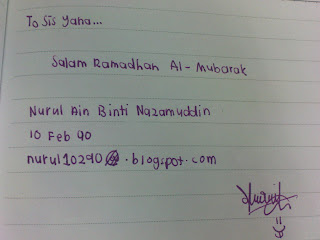 To Sis Yana...
Salam Ramadhan Al-Mubarak
Nurul Ain Binti Nazamuddin
10 Feb 90
nurul10290.blogspot.com